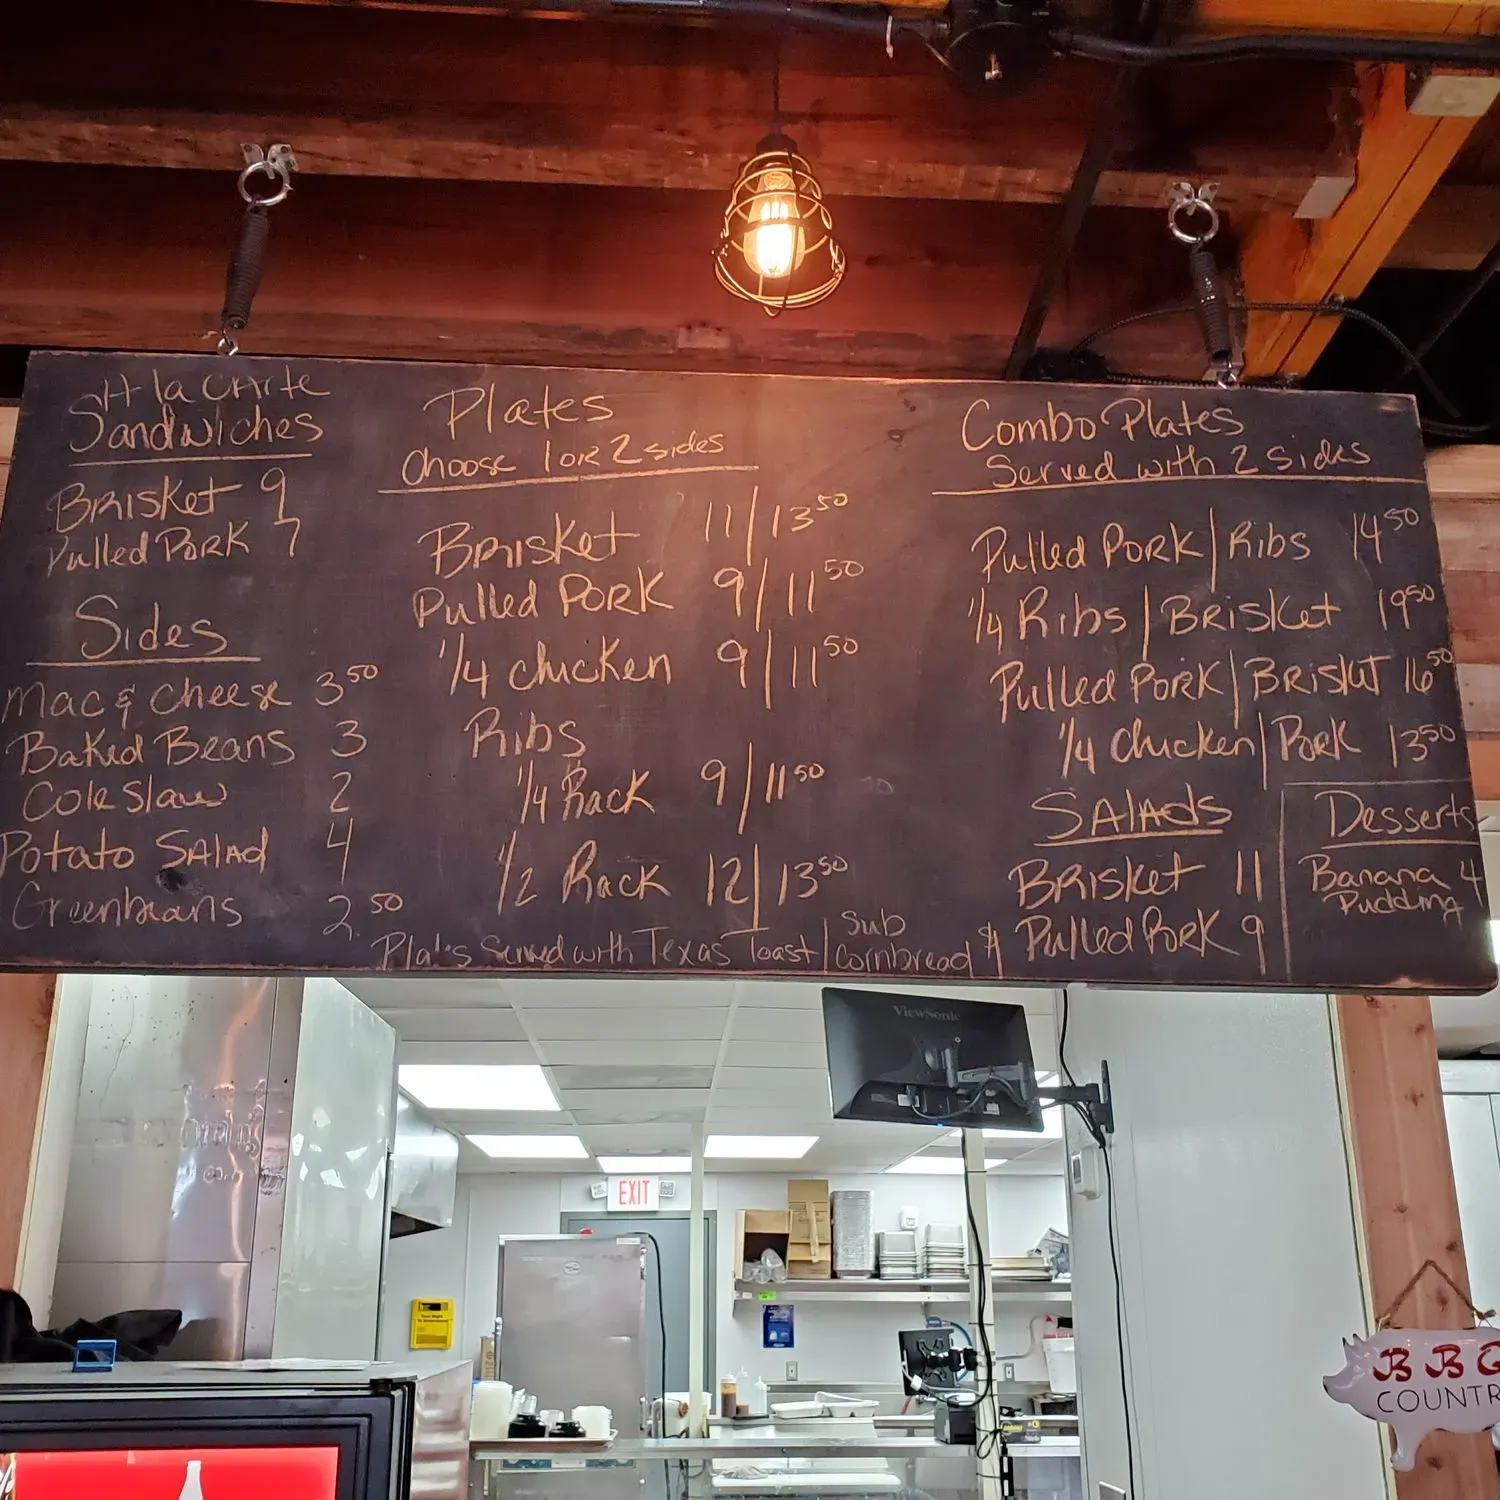 A la Carte
Sandwiches
Brisket 9
Pulled Pork 7
Sides
Mac & Cheese 3 50
Baked Beans 3
Cole Slaw 2
Potato Salad 4
Greenbeans 2. 50
Plates
Choose 1 or 2 sides
Brisket 11/13 50
Pulled Pork 9/11 50
1/4 chicken 9/11 50
Ribs
1/4 Rack 9/11 50
1/2 Rack 12/13 50
Plates Served with Texas Toast/Sub Cornbread $1
Combo Plates
Served with 2 sides
Pulled Pork/Ribs 14 50
1/4 Ribs/Brisket 19 50
Pulled Pork/Brisket 16 50
1/4 Chicken/Pork 13 50
Salads
Brisket 11
Pulled Pork 9
Desserts
Banana 4
Pudding
ViewSonic
EXIT
BBQ
COUNTR